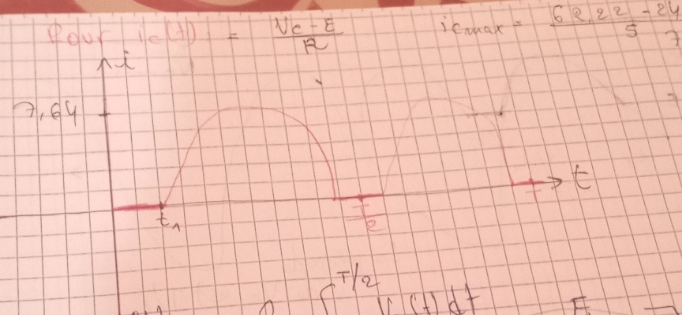 Pour ic(t) = Vc - E / R icmax = 62,22 - 24 / 5
i
7,64
t1 T/2 T t
∫ T/2